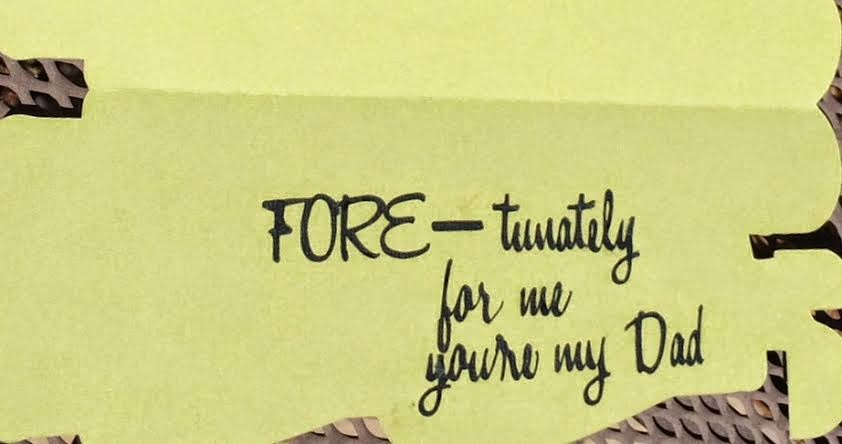 FORE—tunately
for me
you're my Dad